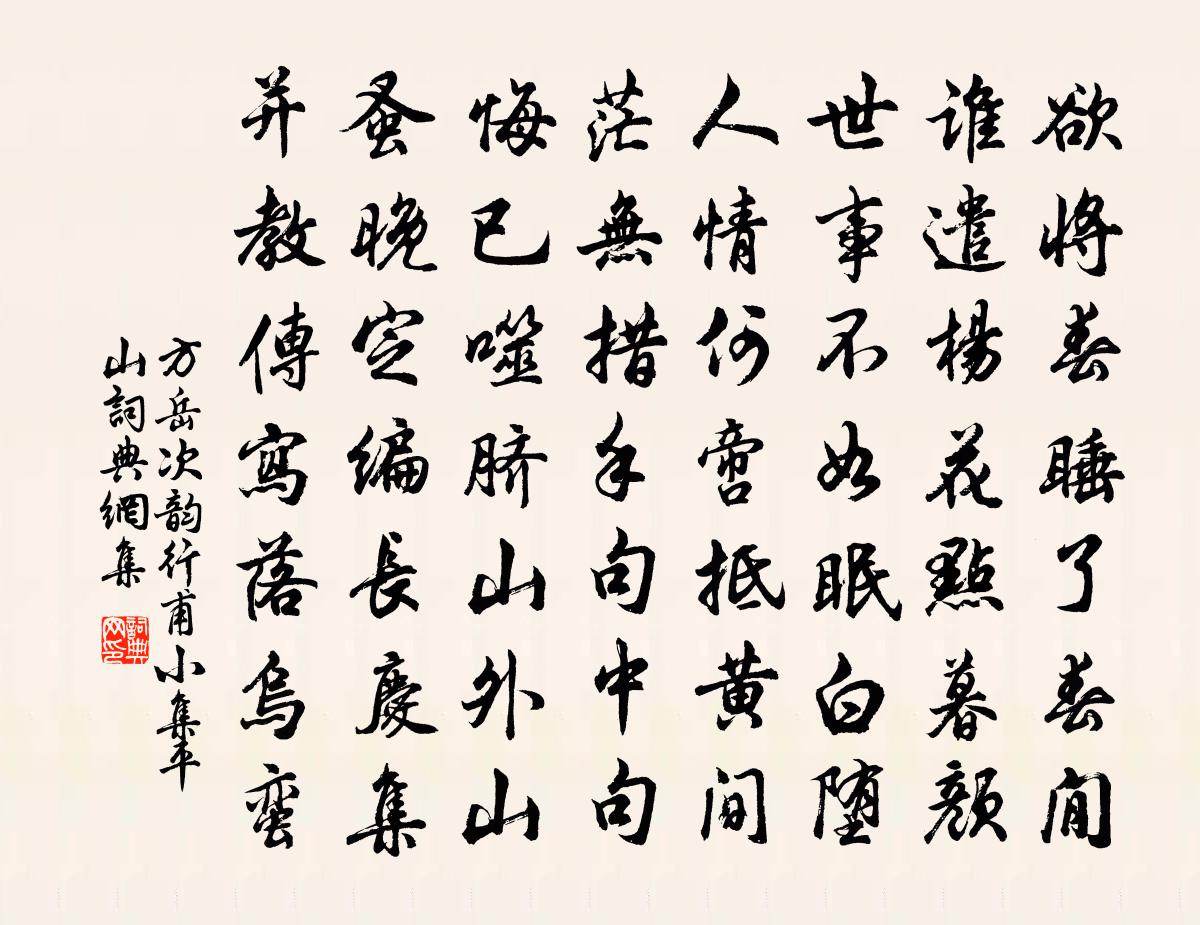 欲將春睡了春閒
誰遣楊花點暮顏
世事不如眠白堕
人情何啻抵黄間
茫無措手句中句
悔已噬脐山外山
蚤晚定編長慶集
并教傳寫落烏蛮
方岳次韵行甫小集平
山詞典網集
詞典网印